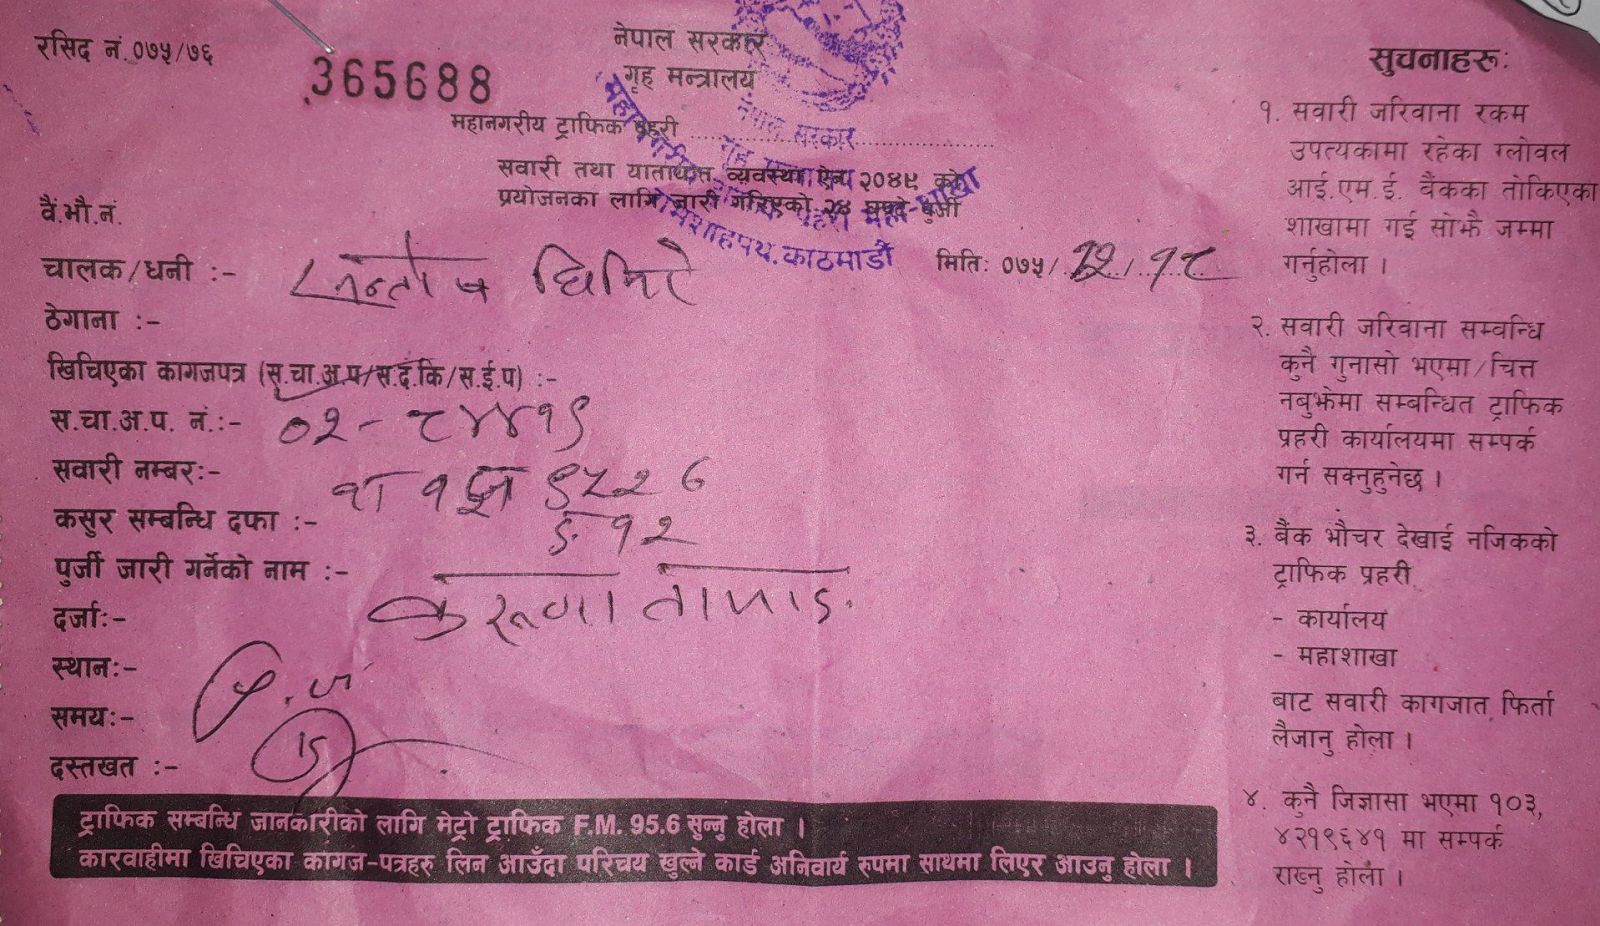 रसिद नं.०७५/७६
365688
नेपाल सरकार
गृह मन्त्रालय
महानगरीय ट्राफिक प्रहरी
सवारी तथा यातायात व्यवस्था ऐन २०४९ को
प्रयोजनका लागि जारी गरिएको २४ घण्टे पुर्जी
नेपाल सरकार
गृह मन्त्रालय
महानगरीय ट्राफिक प्रहरी महा-शाखा
रामशाहपथ, काठमाडौं
वै.भौ.नं.
चालक/धनी :- सन्तोष घिमिरे
मिति: ०७५/12/१८
ठेगाना :-
खिचिएका कागजपत्र (स.चा.अ.प/स.द.कि/स.ई.प) :-
स.चा.अ.प. नं.:- ०२-८४४१९
सवारी नम्बर:-
कसुर सम्बन्धि दफा :- ङ १२
पुर्जी जारी गर्नेको नाम :-
करूणा तामाङ
दर्जा:-
स्थान:-
समय:-
दस्तखत :-
ट्राफिक सम्बन्धि जानकारीको लागि मेट्रो ट्राफिक F.M. 95.6 सुन्नु होला ।
कारवाहीमा खिचिएका कागज-पत्रहरु लिन आउँदा परिचय खुल्ने कार्ड अनिवार्य रुपमा साथमा लिएर आउनु होला ।
सुचनाहरू:
१. सवारी जरिवाना रकम
उपत्यकामा रहेका ग्लोवल
आई.एम.ई. बैंकका तोकिएका
शाखामा गई सोझै जम्मा
गर्नुहोला ।
२. सवारी जरिवाना सम्वन्धि
कुनै गुनासो भएमा/चित्त
नबुझेमा सम्बन्धित ट्राफिक
प्रहरी कार्यालयमा सम्पर्क
गर्न सक्नुहुनेछ ।
३. बैंक भौचर देखाई नजिकको
ट्राफिक प्रहरी
- कार्यालय
- महाशाखा
बाट सवारी कागजात फिर्ता
लैजानु होला ।
४. कुनै जिज्ञासा भएमा १०३,
४२१९६४१ मा सम्पर्क
राख्नु होला ।